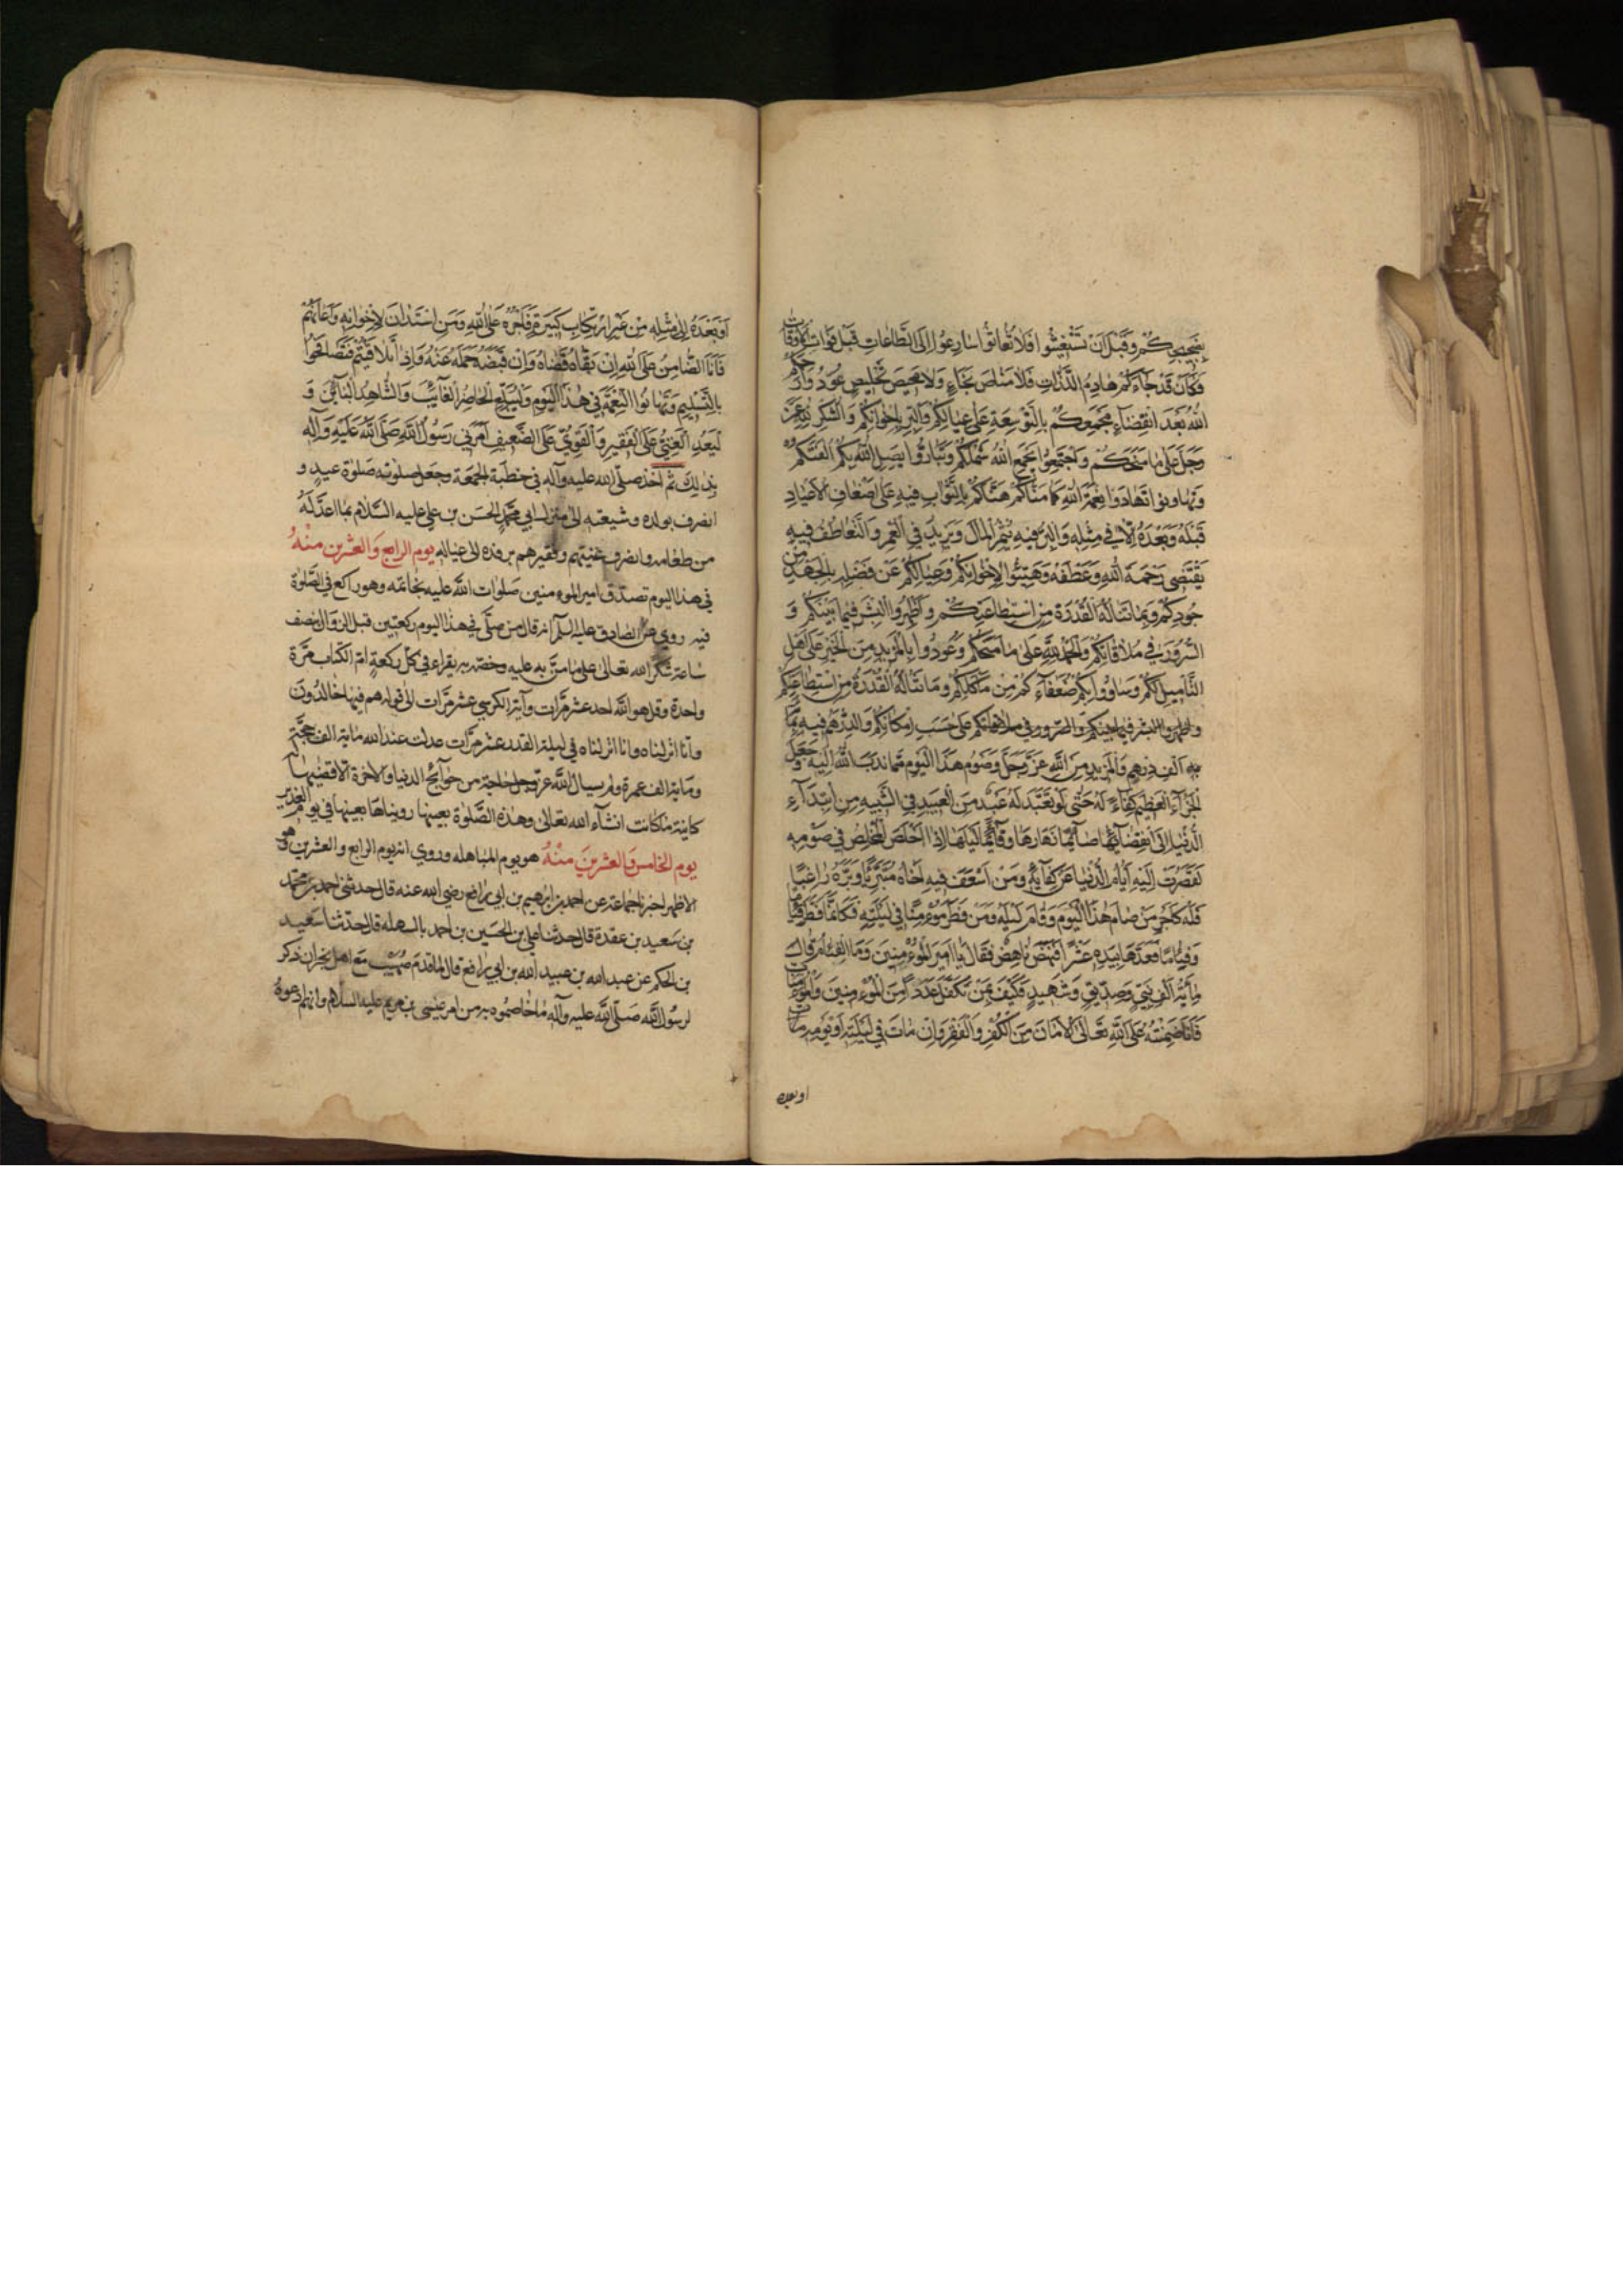 بضجيجكم وقبل أن تستغيثوا فلا تغاثوا سارعوا إلى الطاعات قبل فوات الأوقات
فكان قد جاءكم هادم اللذات فلا مناص نجاء ولا محيص تخليص عودوا رحمكم
الله بعد انقضاء مجمعكم بالتوسعة على عيالكم والبر بإخوانكم والشكر لله عز
وجل على ما منحكم واجتمعوا يجمع الله شملكم وتباروا يصل الله بكم ألفتكم
وتهادوا نعمة الله كما مناكم هنأكم بالثواب فيه على أضعاف الأعياد
قبله وبعده إلا في مثله والبر فيه يثمر المال ويزيد في العمر والتعاطف فيه
يقتضي رحمة الله وعطفه وهيئوا لإخوانكم وعيالكم عن فضله بالجهد من
جودكم وبما تناله القدرة من استطاعتكم وأظهروا البشر فيما بينكم و
السرور في ملاقاتكم والحمد لله على ما منحكم وعودوا بالمزيد من الخير على أهل
التأميل لكم وساووا بكم ضعفاءكم من مأكلكم وما تناله القدرة من استطاعتكم
على حسب إمكانكم والدرهم فيه بمائة
ألف درهم والمزيد من الله عز وجل وصوم هذا اليوم مما ندب الله إليه وجعل
الجزاء العظيم كفاء له حتى لو تعبد له عبد من العبيد في الشبيه من ابتداء
الدنيا إلى انقضائها صائما نهارها وقائما ليلها إذا أخلص المخلص في صومه
لقصرت إليه أيام الدنيا عن كفائه ومن أسعف فيه أخاه مبتدئا وبره راغبا
فله كأجر من صام هذا اليوم وقام ليله ومن فطر موءمنا في ليلته فكأنما فطر فئاما
وفئاما فعدها بيده عشرا فنهض ناهض فقال يا أمير الموءمنين وما الفئام قال
مائة ألف نبي وصديق وشهيد فكيف بمن تكفل عددا من الموءمنين والموءمنات
فأنا ضمنته على الله تعالى الأمان من الكفر والفقر وإن مات في ليلته أو يومه
او بعده
أو بعده إلى مثله من غير ارتكاب كبيرة فأجره على الله ومن استدان لإخوانه وأعانهم
فأنا الضامن على الله إن بقاه قضاه وإن قبضه حمله عنه وإذا تلاقيتم فتصافحوا
بالتسليم وتهانوا النعمة في هذا اليوم وليبلغ الحاضر الغائب والشاهد البائن و
ليعد الغني على الفقير والقوي على الضعيف أمرني رسول الله صلى الله عليه وآله
بذلك ثم أخذ صلى الله عليه وآله في خطبة الجمعة وجعل صلوته صلوة عيد و
انصرف بولده وشيعته إلى منزل أبي محمد الحسن بن علي عليه السلام بما اعد له
من طعامه وانصرف غنيهم وفقيرهم برفده إلى عياله يوم الرابع والعشرين منه
في هذا اليوم تصدق أمير الموءمنين صلوات الله عليه بخاتمه وهو راكع في الصلوة
فيه روي عن الصادق عليه السلم انه قال من صلى في هذا اليوم ركعتين قبل الزوال بنصف
ساعة شكرا لله تعالى على ما من به عليه وخصه به يقراء في كل ركعة ام الكتاب مرة
واحدة وقل هو الله احد عشر مرات وآية الكرسي عشر مرات إلى قوله هم فيها خالدون
وانا انزلناه في ليلة القدر عشر مرات عدلت عند الله مائة الف حجة
ومائة الف عمرة ولم يسأل الله عز وجل حاجة من حوائج الدنيا والآخرة الا قضيها له
كائنة ما كانت انشاء الله تعالى وهذه الصلوة بعينها رويناها بعينها في يوم الغدير
يوم الخامس والعشرين منه هو يوم المباهله وروي انه يوم الرابع والعشرين وهو
الاظهر اخبرنا جماعة عن احمد بن ابرهيم بن أبي رافع رضي الله عنه قال حدثني احمد بن محمد
بن سعيد بن عقدة قال حدثنا علي بن الحسين بن احمد قال حدثنا سعيد
بن الحكم عن عبد الله بن عبيد الله بن أبي رافع قال لما قدم صهيب مع اهل نجران ذكر
لرسول الله صلى الله عليه وآله ما خاصموه به من امر عيسى بن مريم عليه السلام وانهم دعوه